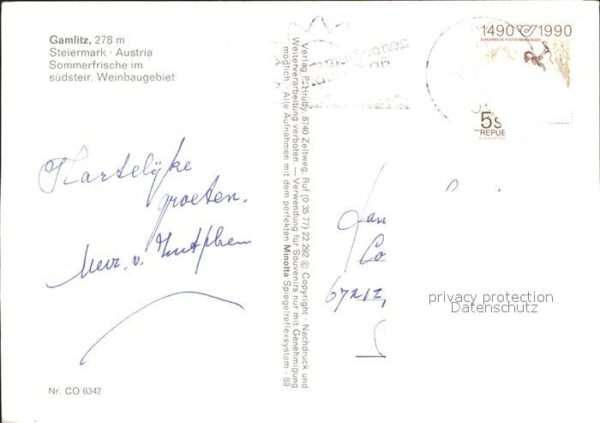 Gamlitz, 278 m
Steiermark · Austria
Sommerfrische im
südsteir. Weinbaugebiet
Hartelijke
groeten.
Mevr. v. Zutphen
Nr. CO 6342
Verlag F. Hruby, 8740 Zeltweg, Ruf (0 35 77) 22 292 © Copyright · Nachdruck und
Weiterverarbeitung verboten — Verwendung für Souvenirs nur mit Genehmigung
möglich · Alle Aufnahmen mit dem perfekten Minolta Spiegelreflexsystem · 89
1490 1990
5s
REPUB
Co
6721Z,
privacy protection
Datenschutz